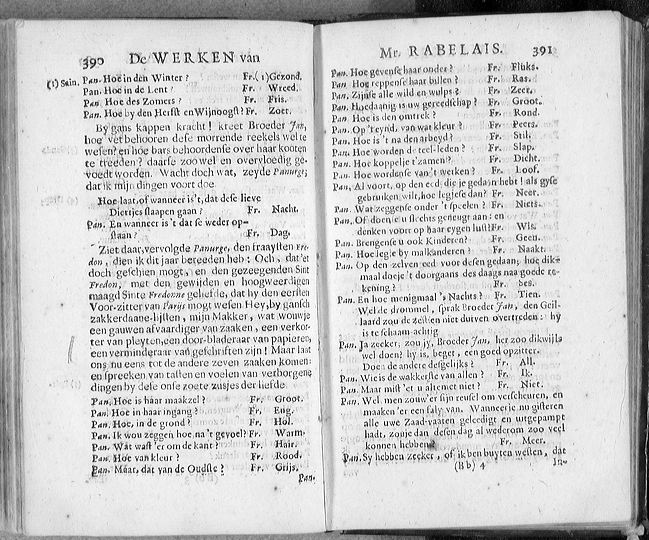 390 De WERKEN van
(1) Sain. Pan. Hoe in den Winter? Fr. (1) Gezond.
Pan. Hoe in de Lent? Fr. Wreed.
Pan. Hoe des Zomers? Fr. Fris.
Pan. Hoe by den Herfst en Wijnoogst? Fr. Zoet.
By gans kappen kracht! kreet Broeder Jan,
hoe vet behooren dese morrende reekels wel te
wesen? en hoe bars behoordense over haar kooten
te treeden? daarse zoo wel en overvloedig ge-
voedt worden. Wacht doch wat, zeyde Panurge,
dat ik mijn dingen voort doe.
Hoe laat, of wanneer is't, dat dese lieve
Diertjes slaapen gaan? Fr. Nacht.
Pan. En wanneer is't dat se weder op-
staan? Fr. Dag.
Ziet daar, vervolgde Panurge, den fraaysten Fre-
don, dien ik dit jaar bereeden heb: Och, dat'et
doch geschien mogt, en den gezeegenden Sint
Fredon, met den gewijden en hoogweerdigen
maagd Sinte Fredonne geliefde, dat hy den eersten
Voor-zitter van Parijs mogt wesen. Hey, by gansch
zakkerdaane-lijsten, mijn Makker, wat wouwje
een gauwen afvaardiger van zaaken, een verkor-
ter van pleyten, een door-bladeraar van papieren,
een verminderaar van geschriften zijn! Maar laat
ons nu eens tot de andere zeven zaaken komen:
en spreeken van tasten en voelen van verborgene
dingen by dese onse zoete zusjes der liefde.
Pan. Hoe is haar maakzel? Fr. Groot.
Pan. Hoe in haar ingang? Fr. Eng.
Pan. Hoe, in de grond? Fr. Hol.
Pan. Ik wou zeggen hoe na't gevoel? Fr. Warm.
Pan. Wat wast'er om de kant? Fr. Hair.
Pan. Hoe van kleur? Fr. Rood.
Pan. Maar, dat van de Oudste? Fr. Grijs.
Pan.
Mr. RABELAIS. 391
Pan. Hoe gevense haar onder? Fr. Fluks.
Pan. Hoe reppense haar billen? Fr. Ras.
Pan. Zijnse alle wild en wulps? Fr. Zeer.
Pan. Hoedaanig is uw gereedschap? Fr. Groot.
Pan. Hoe is den omtrek? Fr. Rond.
Pan. Op't eynd, van wat kleur? Fr. Peers.
Pan. Hoe is't na den arbeyd? Fr. Stil.
Pan. Hoe worden de teel-leden? Fr. Slap.
Pan. Hoe koppelje t'zamen? Fr. Dicht.
Pan. Hoe wordense van't werken? Fr. Loof.
Pan. Al voort, op den eed, die je gedaan hebt! als gyse
gebruiken wilt, hoe legjese dan? Fr. Neer.
Pan. Wat zeggense onder't speelen? Fr. Niets.
Pan. Of doen se u slechts geneugt aan: en
denken voor op haar eygen lust? Fr. Wis.
Pan. Brengense u ook Kinderen? Fr. Geen.
Pan. Hoe legje by malkanderen? Fr. Naakt.
Pan. Op den zelven eed voor desen gedaan; hoe dik-
maal doeje't doorgaans des daags na goede re-
kening? Fr. Ses.
Pan. En hoe menigmaal's Nachts? Fr. Tien.
Wel de drommel, sprak Broeder Jan, den Geil-
laard zou de zestien niet durven overtreden: hy
is te schaamachtig.
Pan. Ja zeeker, zou jy, Broeder Jan, het zoo dikwijls
wel doen? hy is, beget, een goed opzitter.
Doen de andere desgelijks? Fr. All.
Pan. Wie is de wakkerste van allen? Fr. Ik.
Pan. Maar mist'et u altemet niet? Fr. Niet.
Pan. Wel, men zouw'er sijn reusel om verscheuren, en
maaken'er een faly van. Wanneer je nu gisteren
alle uwe Zaad-vaaten geleedigt en uitgepampt
hadt, zouje dan desen dag al wederom zoo veel
konnen hebben? Fr. Meer.
Pan. Sy hebben zeeker, of ik ben buyten westen, dat
(Bb) 4 In-